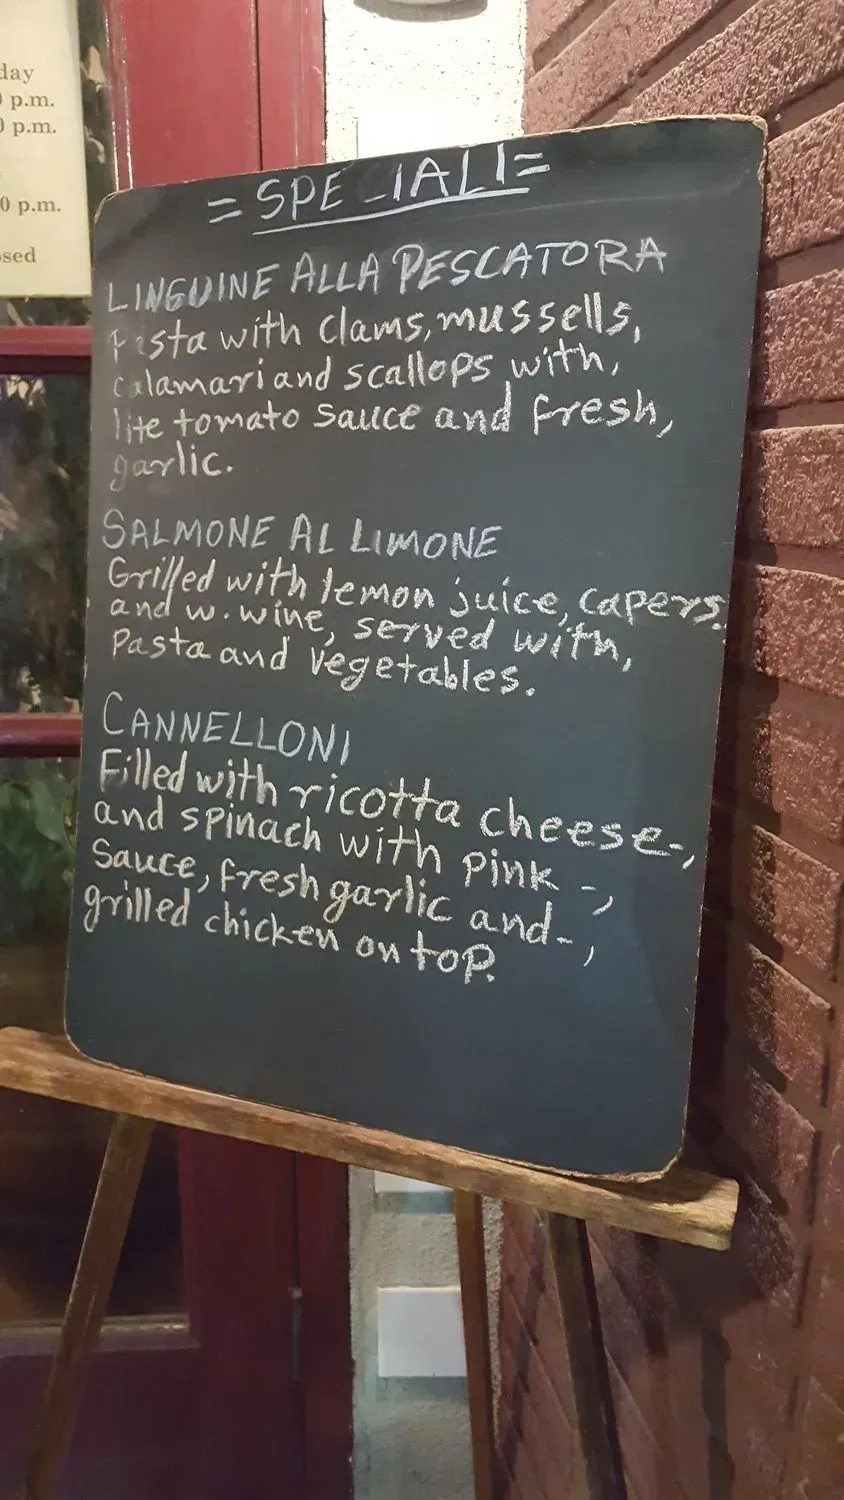 day
0 p.m.
0 p.m.
0 p.m.
= SPECIALI =
LINGUINE ALLA PESCATORA
Pasta with clams, mussells,
calamari and scallops with,
lite tomato sauce and fresh,
garlic.
SALMONE AL LIMONE
Grilled with lemon juice, capers,
and w. wine, served with,
Pasta and vegetables.
CANNELLONI
Filled with ricotta cheese-,
and spinach with pink -,
Sauce, fresh garlic and-,
grilled chicken on top.